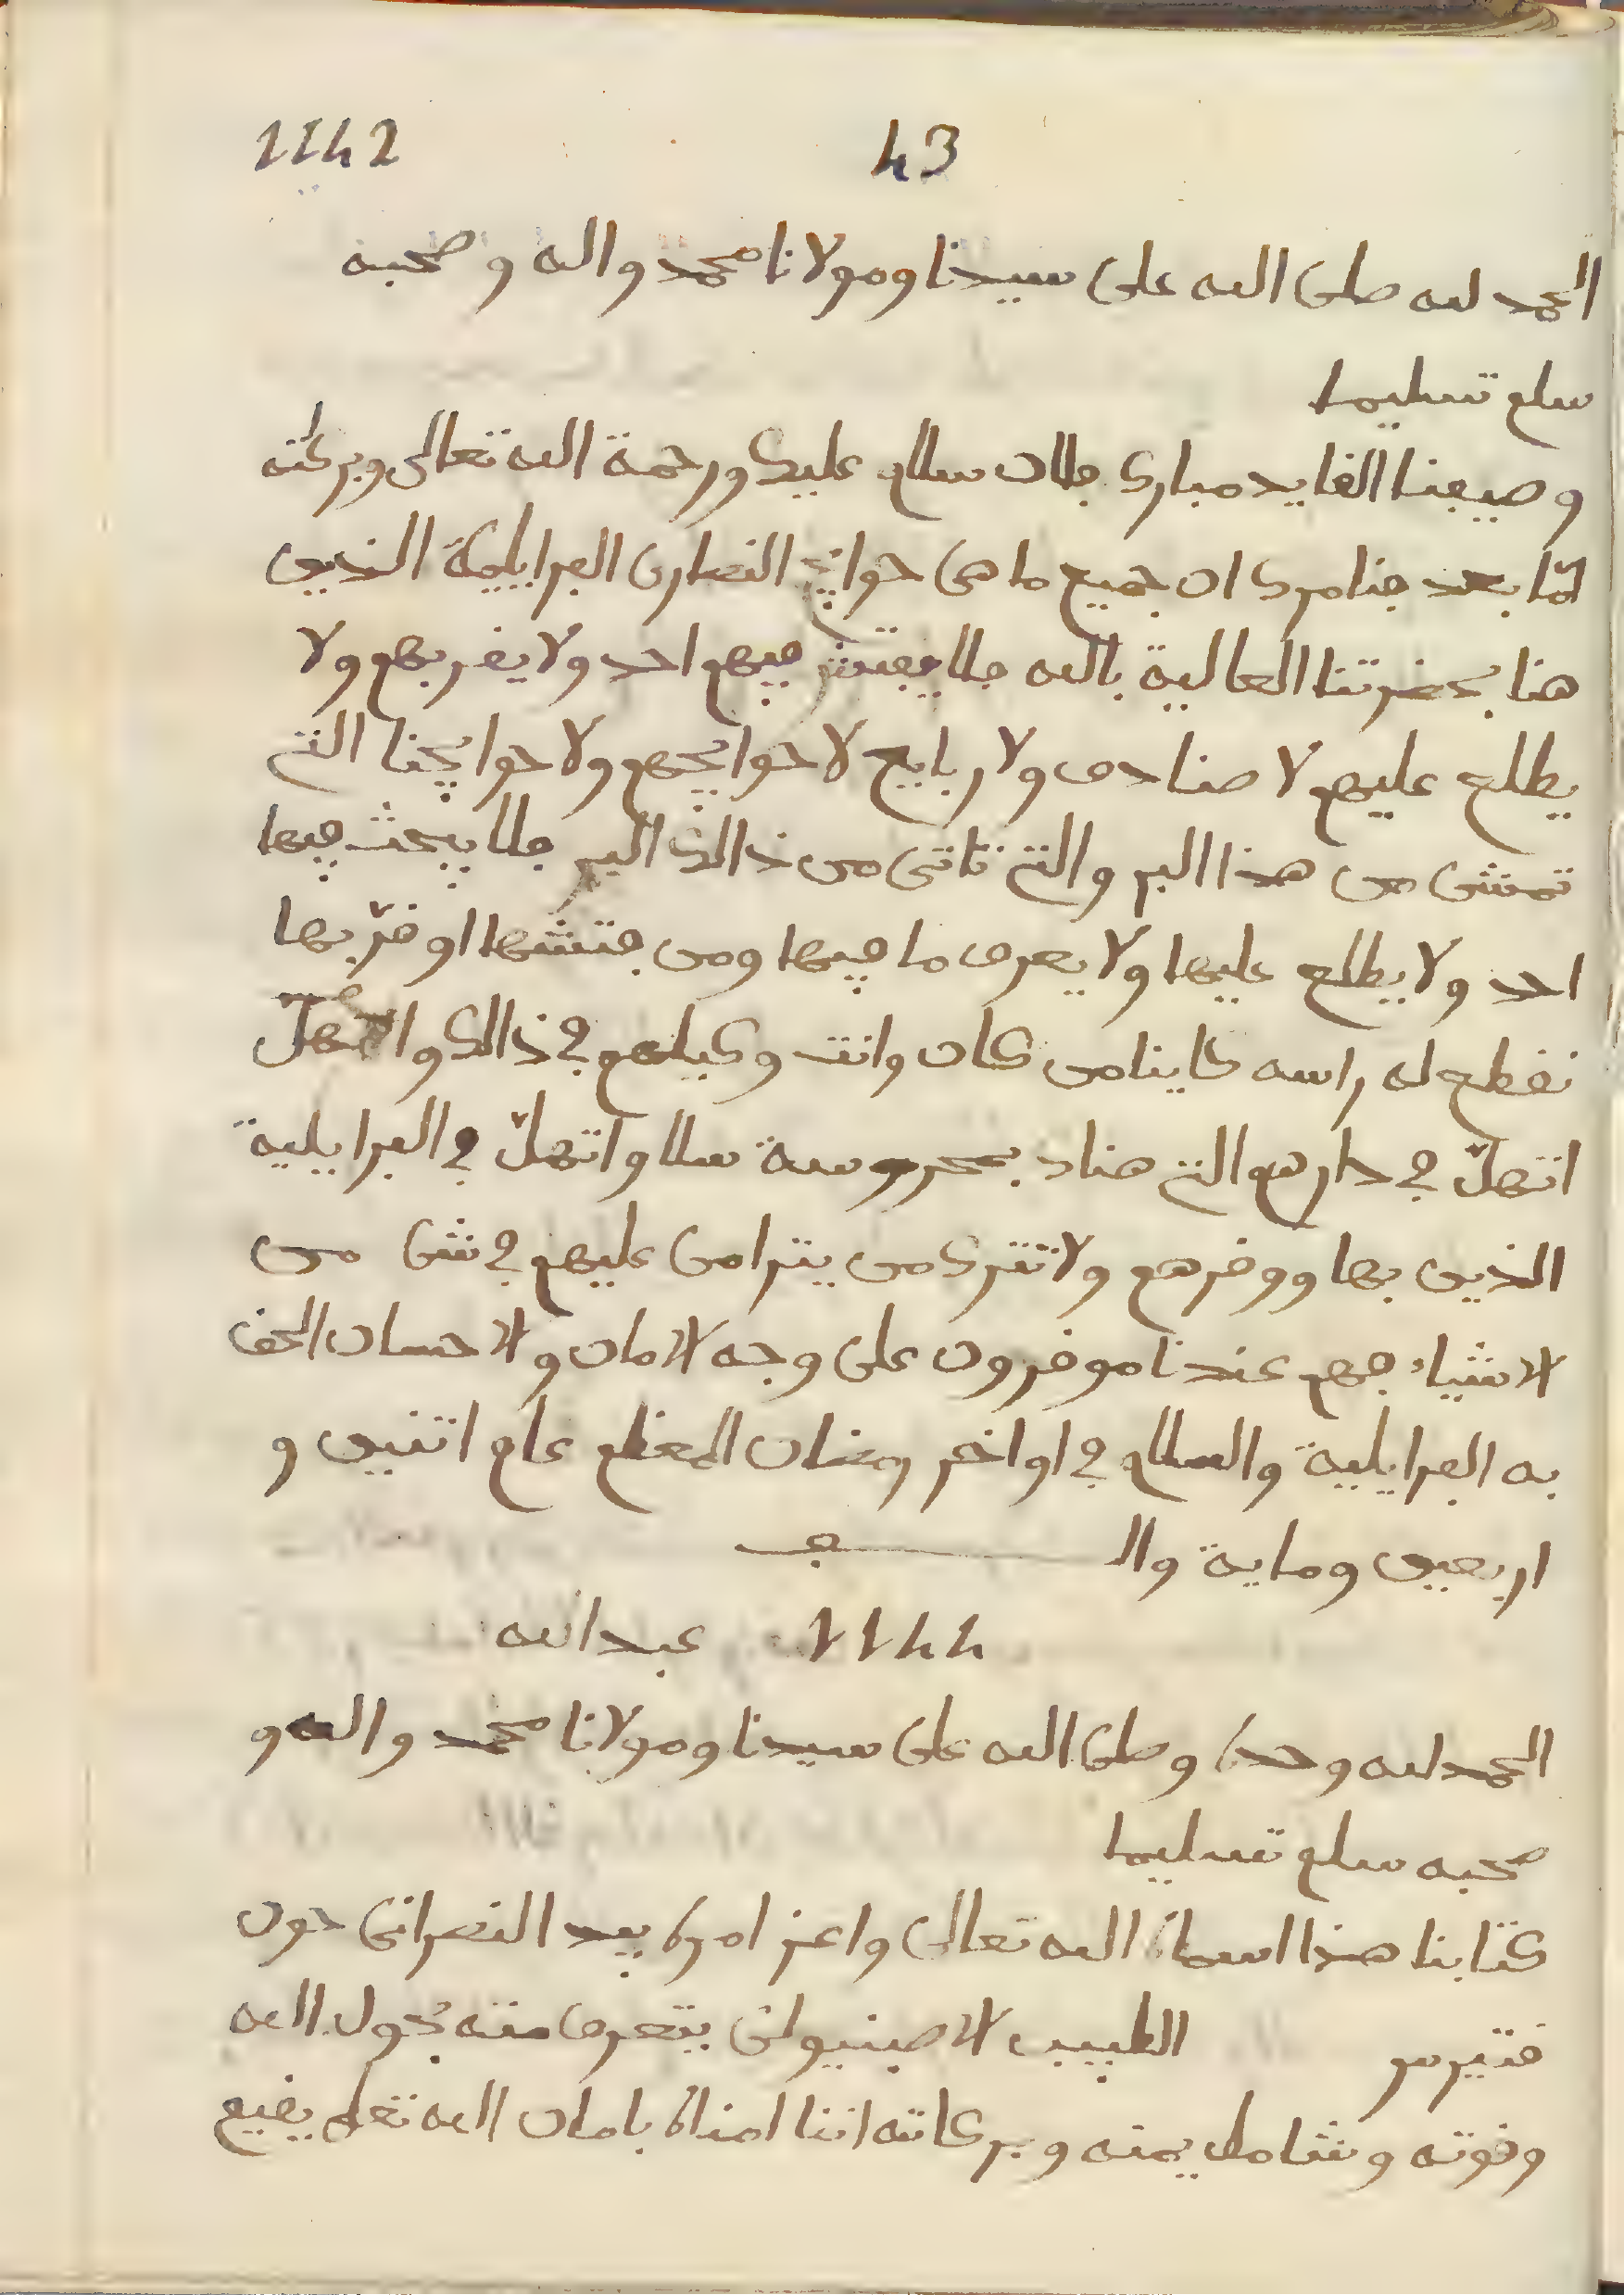 1142 43
الحمد لله صلى الله على سيدنا ومولانا محمد واله وصحبه
سلم تسليما
وصيفنا القايد مبارك فلان سلام عليك ورحمة الله تعالى وبركاته
امّا بعد فنامرك ان جميع ما هي حوايج النصارى الفرايلية الذين
هنا بحضرتنا العالية بالله فلا يفتش فيهم احد ولا يقربهم ولا
يطلع عليهم لا صنادق ولا ربايع لا حوايجهم ولا حوايجنا التي
تمشى من هذا البر والتي تاتى من ذالك البر فلا يبحث فيها
احد ولا يطلع عليها ولا يعرف ما فيها ومن فتشها او قرّبها
نقطع له راسه كاينا من كان وانت وكيلهم في ذالك واتهلّ
اتهلّ في دارهم التي هناك بمحروسة سلا واتهلّ في الفرايلية
الذين بها ووقرهم ولا تترك من يترامى عليهم في شى من
الاشياء فهم عندنا موقرون على وجه الامان والاحسان الحق
به الفرايلية والسلام في اواخر رمضان المعظم عام اثنين و
اربعين وماية والف
1144 عبد الله
الحمد لله وحده وصلى الله على سيدنا ومولانا محمد واله و
صحبه سلم تسليما
كتابنا هذا اسماه الله تعالى واعز امره بيد النصرانى دون
الطبيب الاصبنيولى يتعرف منه بحول الله
وقوته وشامل يمنه وبركاته اننا امناه بامان الله تعلى يضيع